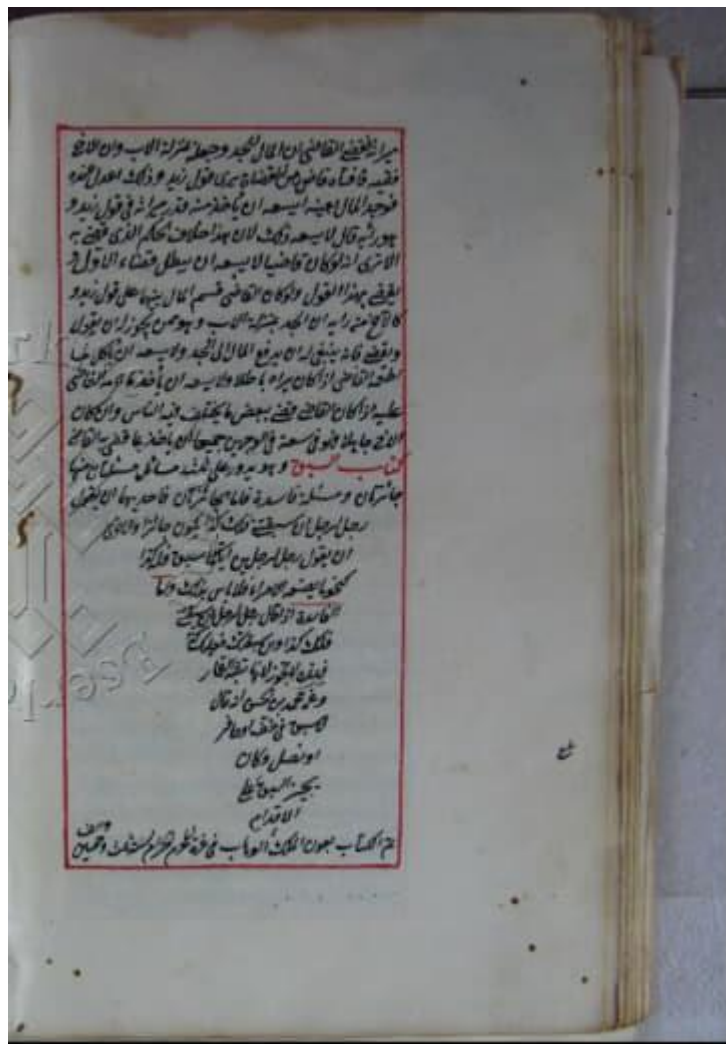 ميراثه فقضى القاضي ان المال للجد وجعله بمنزلة الاب وان الاخ
فقيه فافتاه قاض من القضاة يرى قول زيد وذلك اعدل عنده
فوجد المال بعينه ايسعه ان ياخذ منه قدر ميراثه في قول زيد و
يورثه قال لا يسعه ذلك لان هذا خلاف الحكم الذي قضى به
الا ترى انه لو كان قاضيا لا يسعه ان يبطل قضاء الاول و
يقضي بهذا القول ولو كان القاضي قسم المال بينهما على قول زيد و
كان الاخ من رايه ان الجد بمنزلة الاب وهو ممن يجوز له ان يقول
ويقضي فانه ينبغي له ان يدفع المال الى الجد ولا يسعه ان ياكل مما
اطعمه القاضي اذا كان يراه باطلا ولا يسعه ان ياخذ ما رده القاضي
عليه اذا كان القاضي قضى ببعض ما يختلف فيه الناس وان كان
الاخ جاهلا فهو في سعة في الوجهين جميعا ان ياخذ بما قضى به القاضي
كتاب السبق وهو يدور على ثلث مسائل مسئلتان منها
جائزتان ومسئلة فاسدة فاما الجائزتان فاحديهما ان يقول
رجل لرجل ان سبقتني فلك كذا يكون جائزا والاخرى
ان يقول رجل لرجلين ايكما سبق فله كذا
كنحو ما يصنعه الامراء فلا باس بذلك واما
الفاسدة اذا قال رجل لرجل ان سبقتني
فلك كذا وان سبقتك فعليك كذا
فهذا لا يجوز لانه شبه القمار
وعن محمد بن الحسن انه قال
لا سبق الا في خف او حافر
او نصل وكان
يجيز السبق على
الاقدام
تم الكتاب بعون الملك الوهاب في غرة